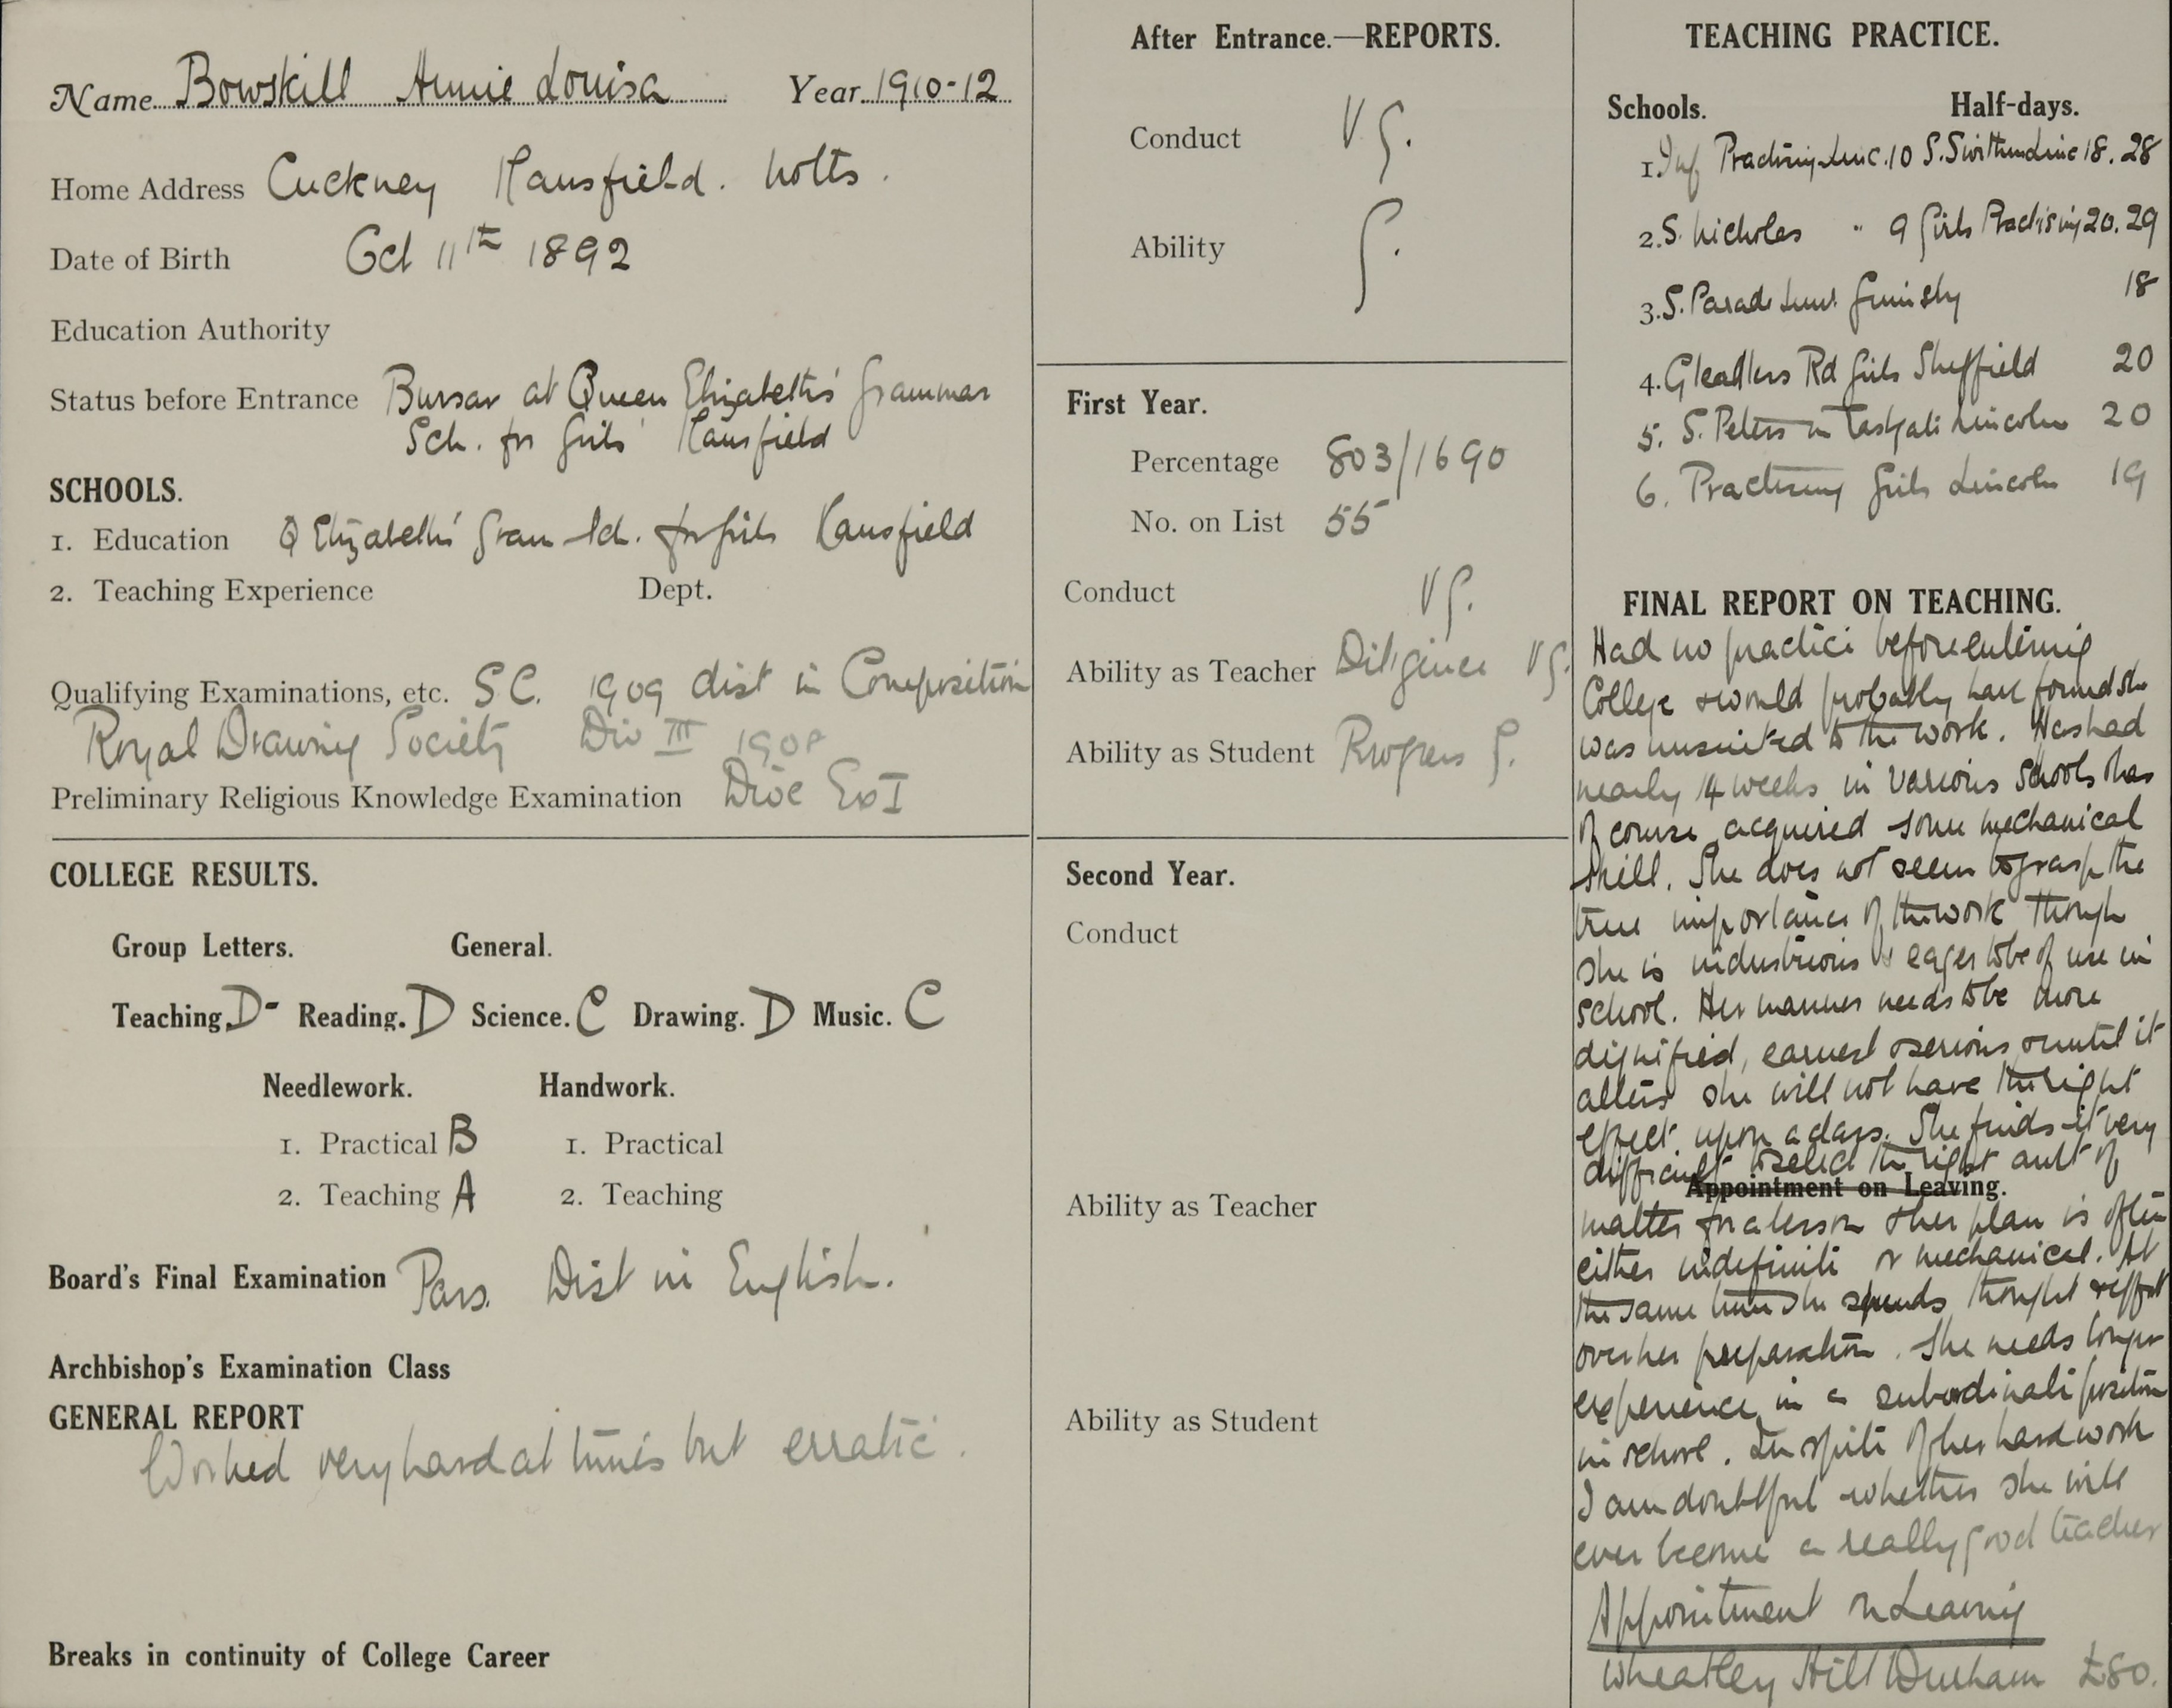 Name Bowskill Annie Louisa Year 1910-12
Home Address Cuckney Mansfield. Notts.
Date of Birth Oct 11th 1892
Education Authority
Status before Entrance Bursar at Queen Elizabeth's Grammar
Sch. for Girls' Mansfield
SCHOOLS.
1. Education Q Elizabeth's Gram Sch. for Girls Mansfield
2. Teaching Experience Dept.
Qualifying Examinations, etc. S.C. 1909 dist in Composition
Royal Drawing Society Div III 1908
Preliminary Religious Knowledge Examination Dioc Ex I
COLLEGE RESULTS.
Group Letters. General.
Teaching. D- Reading. D Science. C Drawing. D Music. C
Needlework. Handwork.
1. Practical B 1. Practical
2. Teaching A 2. Teaching
Board's Final Examination Pass. Dist in English.
Archbishop's Examination Class
GENERAL REPORT
Worked very hard at times but erratic.
Breaks in continuity of College Career
After Entrance.—REPORTS.
Conduct V G.
Ability G.
First Year.
Percentage 803/1690
No. on List 55
Conduct V G.
Ability as Teacher Diligence V G.
Ability as Student Progress G.
Second Year.
Conduct
Ability as Teacher
Ability as Student
TEACHING PRACTICE.
Schools. Half-days.
1. Inf Practising Linc. 10 S. Swithun Linc 18. 28
2. S. Nicholas " 9 Girls Practising 20. 29
3. S. Parade Grimsby 18
4. Gleadless Rd Girls Sheffield 20
5. S. Peters in Eastgate Lincoln 20
6. Practising Girls Lincoln 19
FINAL REPORT ON TEACHING.
Had no practice before entering
College & would probably have found she
was unsuited to the work. Has had
nearly 14 weeks in various schools & has
of course acquired some mechanical
skill. She does not seem to grasp the
true importance of the work though
she is industrious & eager to be of use in
school. Her manner needs to be more
dignified, earnest & serious & until it
alters she will not have the right
effect upon a class. She finds it very
difficult to select the right amt of
Appointment on Leaving.
matter for a lesson & her plan is often
either indefinite or mechanical. At
the same time she spends thought & effort
over her preparation. She needs longer
experience in a subordinate position
in school. In spite of her hard work
I am doubtful whether she will
ever become a really good teacher
Appointment on Leaving
Wheatley Hill Durham £80.